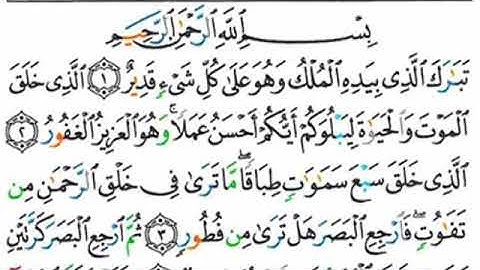 بِسْمِ اللَّهِ الرَّحْمَٰنِ الرَّحِيمِ
تَبَارَكَ الَّذِي بِيَدِهِ الْمُلْكُ وَهُوَ عَلَىٰ كُلِّ شَيْءٍ قَدِيرٌ ۝١ الَّذِي خَلَقَ
الْمَوْتَ وَالْحَيَاةَ لِيَبْلُوَكُمْ أَيُّكُمْ أَحْسَنُ عَمَلًا ۚ وَهُوَ الْعَزِيزُ الْغَفُورُ ۝٢
الَّذِي خَلَقَ سَبْعَ سَمَاوَاتٍ طِبَاقًا ۖ مَّا تَرَىٰ فِي خَلْقِ الرَّحْمَٰنِ مِن
تَفَاوُتٍ ۖ فَارْجِعِ الْبَصَرَ هَلْ تَرَىٰ مِن فُطُورٍ ۝٣ ثُمَّ ارْجِعِ الْبَصَرَ كَرَّتَيْنِ